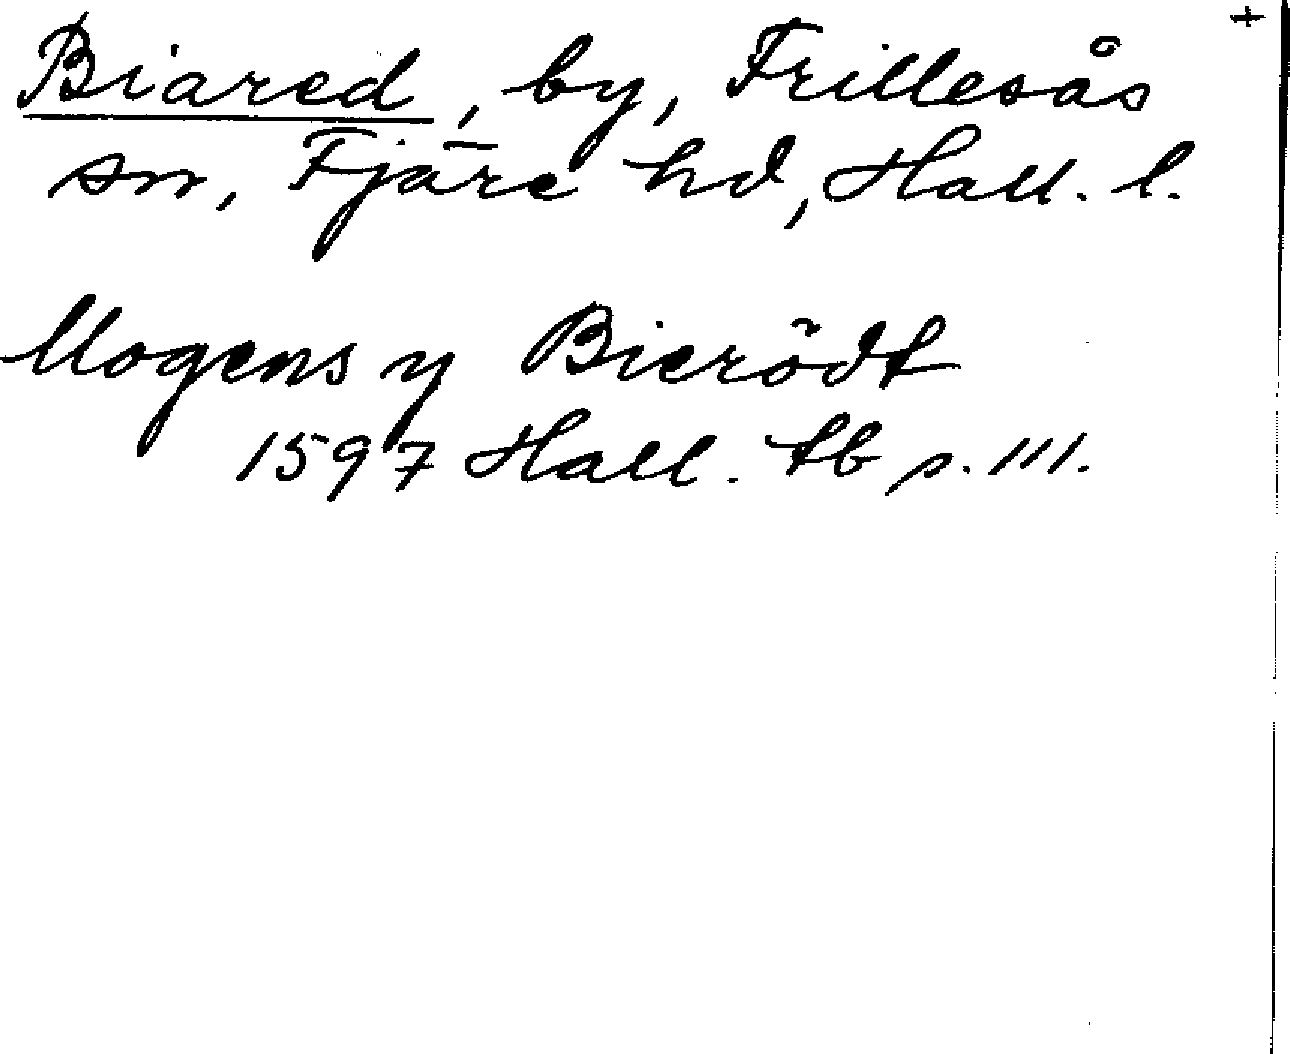 +
Biared, by, Frillesås
sn, Fjäre hd, Hall. l.
Mogens y Bierödt
1597 Hall. tb s. 111.